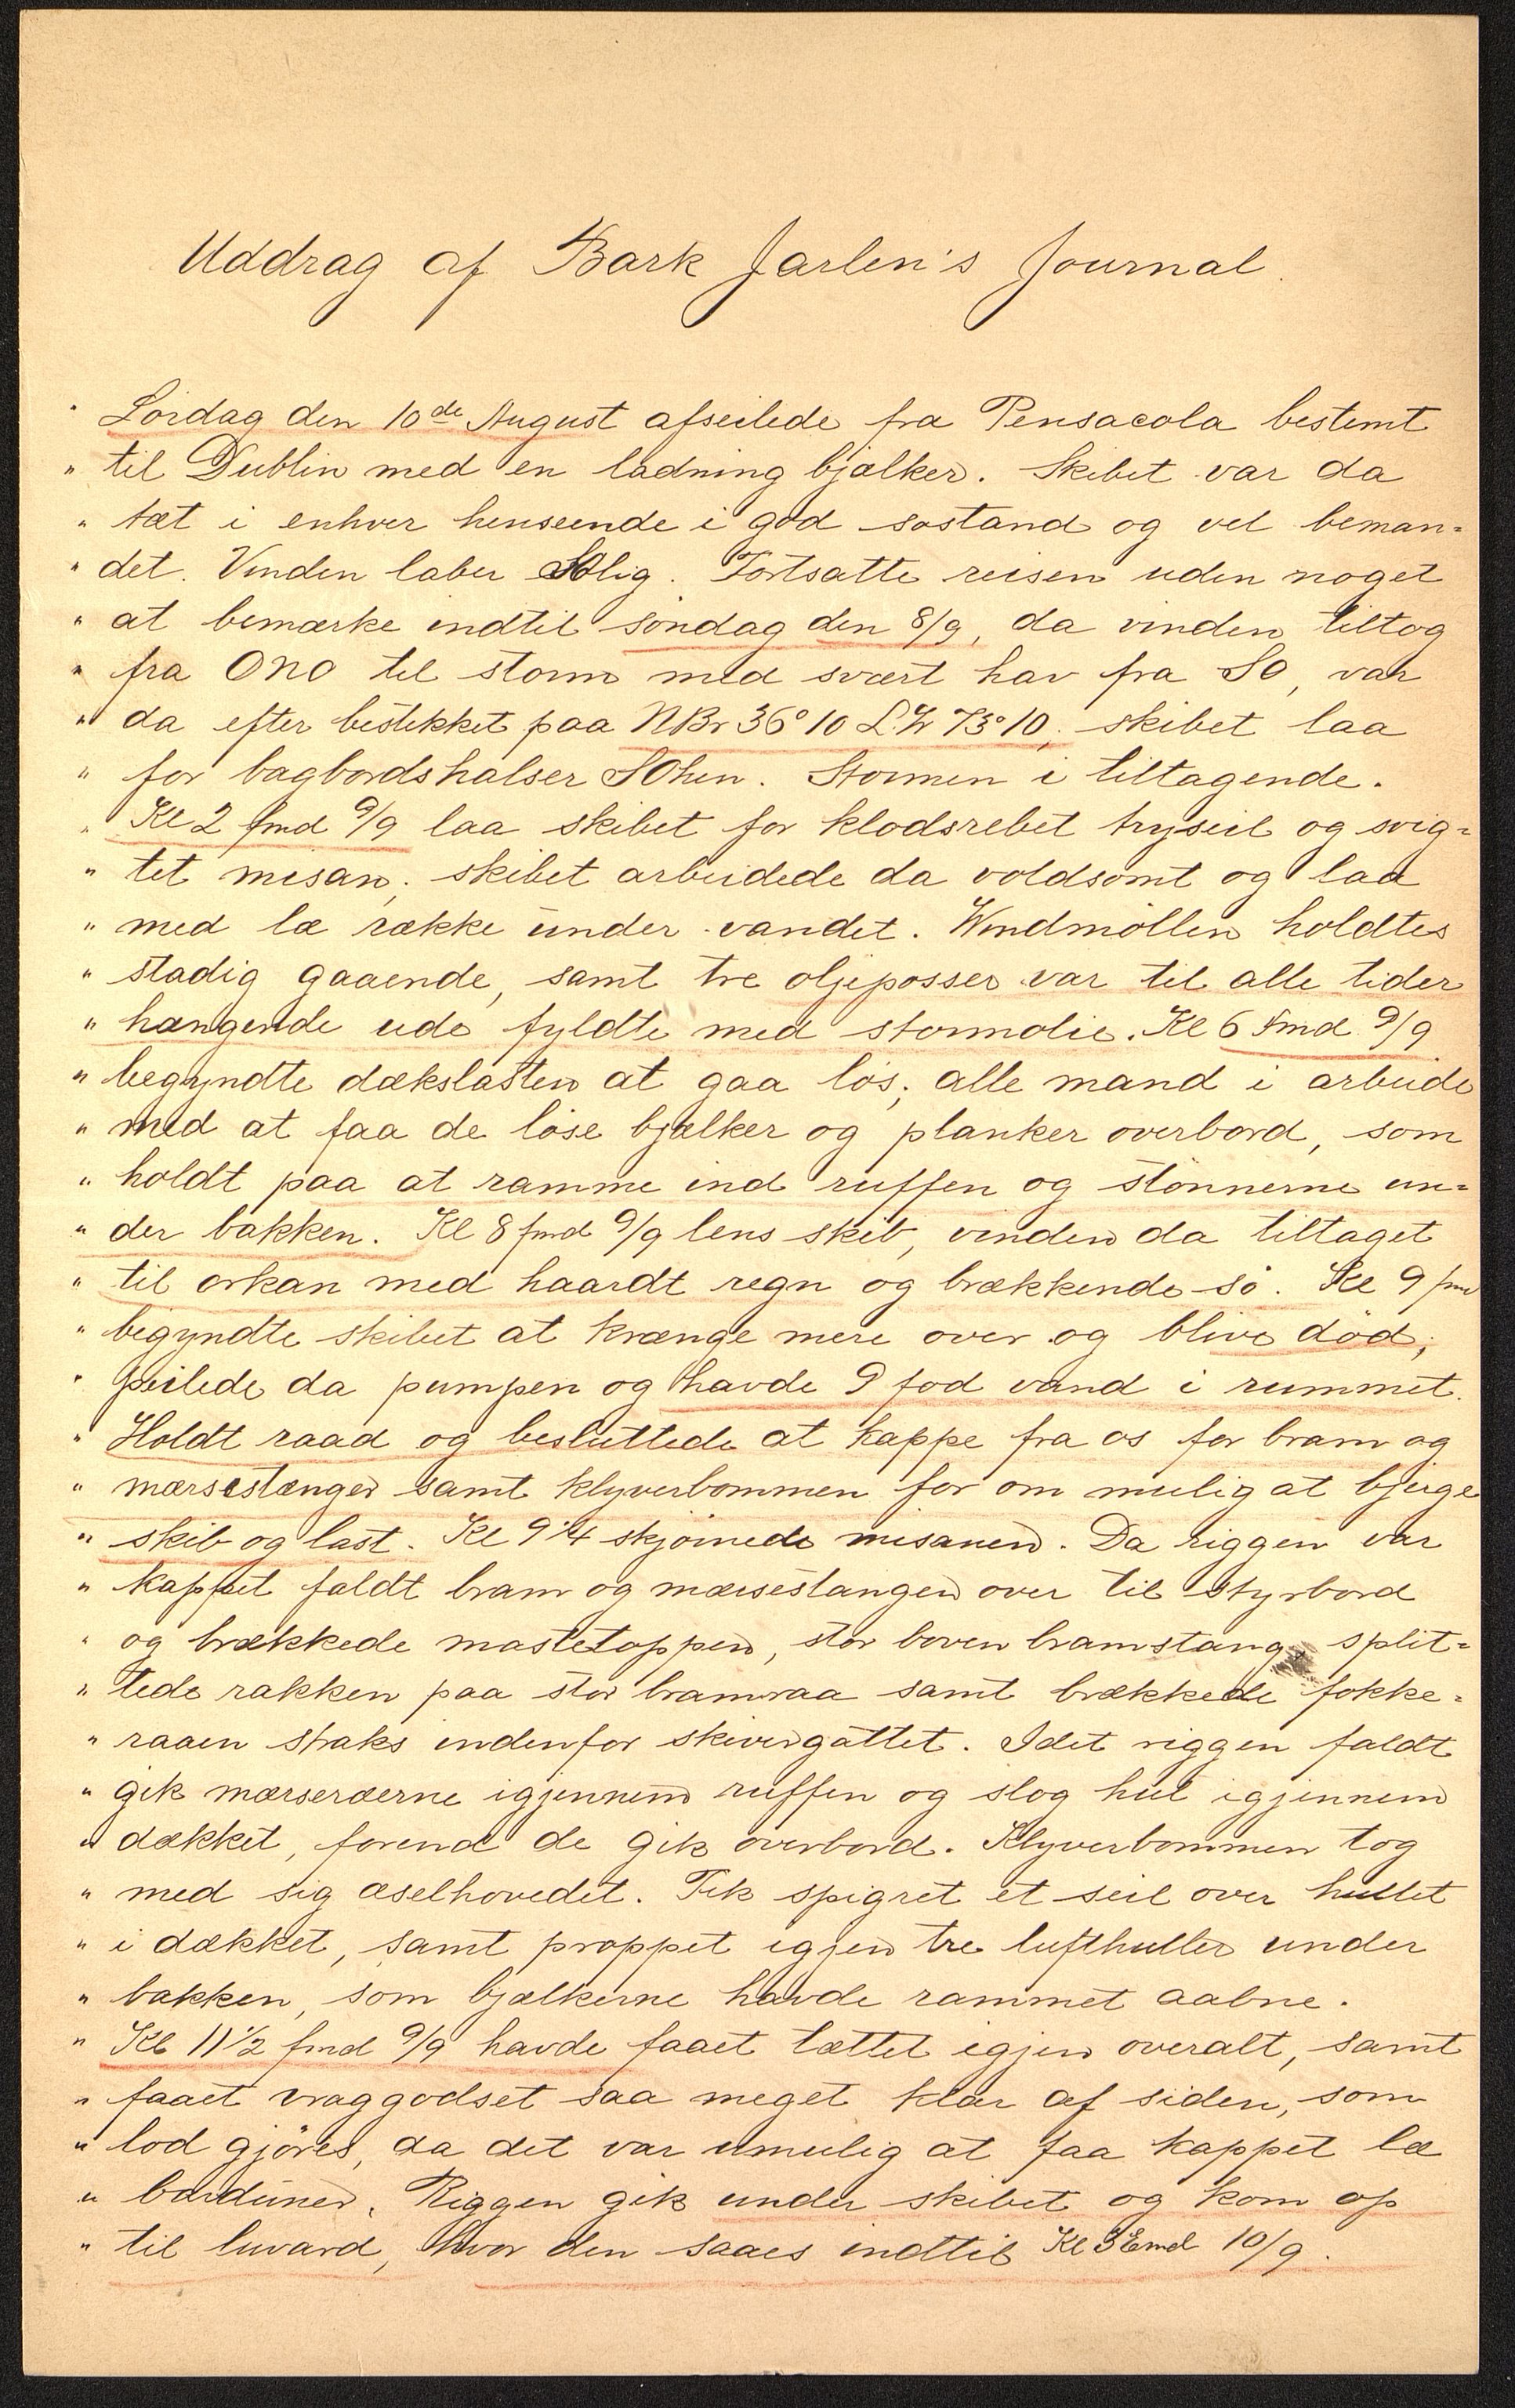 Uddrag af Bark Jarlen's Journal.
" Lördag den 10de August afseilede fra Pensacola bestemt
" til Dublin med en ladning bjælker. Skibet var da
" tæt i enhver henseende i god søstand og vel beman=
" det. Vinden laber SOlig. Fortsatte reisen uden noget
" at bemærke indtil söndag den 8/9, da vinden tiltog
" fra ONO til storm med svært hav fra SO, var
" da efter bestikket paa NBr 36° 10 L.W 73° 10, skibet laa
" for bagbordshalser SOhen. Stormen i tiltagende.
" Kl 2 fmd 9/9 laa skibet for klodsrebet tryseil og svig=
" tet misan; skibet arbeidede da voldsomt og laa
" med læ række under vandet. Windmöllen holdtes
" stadig gaaende, samt tre oljeposser var til alle tider
" hængende ude fyldte med stormolie. Kl 6 Fmd 9/9
" begyndte dækslasten at gaa lös; alle mand i arbeide
" med at faa de löse bjælker og planker overbord, som
" holdt paa at ramme ind ruffen og stönnerne un=
" der bakken. Kl 8 fmd 9/9 lens skib, vinden da tiltaget
" til orkan med haardt regn og brækkende sö. Kl 9 fmd
" begyndte skibet at krænge mere over og blive död;
" peilede da pumpen og havde 9 fod vand i rummet.
" Holdt raad og besluttede at kappe fra os for bram og
" mærsestænger samt klyverbommen for om mulig at bjerge
" skib og last. Kl 9 1/4 skjörnede misanen. Da riggen var
" kappet faldt bram og mærsestangen over til styrbord
" og brækkede mastetoppen, stor boven bramstang, split=
" tede rakken paa stor bramraa samt brækkede fokke=
" raaen straks indenfor skivegattet. Idet riggen faldt
" gik mærseræerne igjennem ruffen og slog hul igjennem
" dækket, forend de gik overbord. Klyverbommen tog
" med sig æselhovedet. Fik spigret et seil over hullet
" i dækket, samt proppet igjen tre lufthuller under
" bakken, som bjælkerne havde rammet aabne.
" Kl 11 1/2 fmd 9/9 havde faaet tættet igjen overalt, samt
" faaet vraggodset saa meget klar af siden, som
" lod gjöres, da det var umulig at faa kappet læ
" barduner. Riggen gik under skibet og kom op
" til luvard, hvor den saaes indtil Kl 3 Emd 10/9.